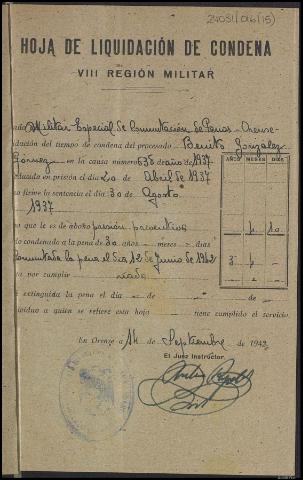 24031/016(15)
HOJA DE LIQUIDACIÓN DE CONDENA
VIII REGIÓN MILITAR
Militar Especial de Conmutación de Penas - Orense-
dación del tiempo de condena del procesado Benito González
Gómez en la causa número 638 de año de 1937
AÑOS MESES DIAS
en prisión el día 20 de Abril de 1937
firme la sentencia el día 30 de Agosto
1937
que le es de abono prisión preventiva
10
condenado a la pena de 30 años - meses - días
la pena el día 12 de Junio de 1942
3
por cumplir
extinguida la pena el día - de - de -
a quien se refiere esta hoja tiene cumplido el servicio.
En Orense a 14 de Septiembre de 1942
El Juez Instructor